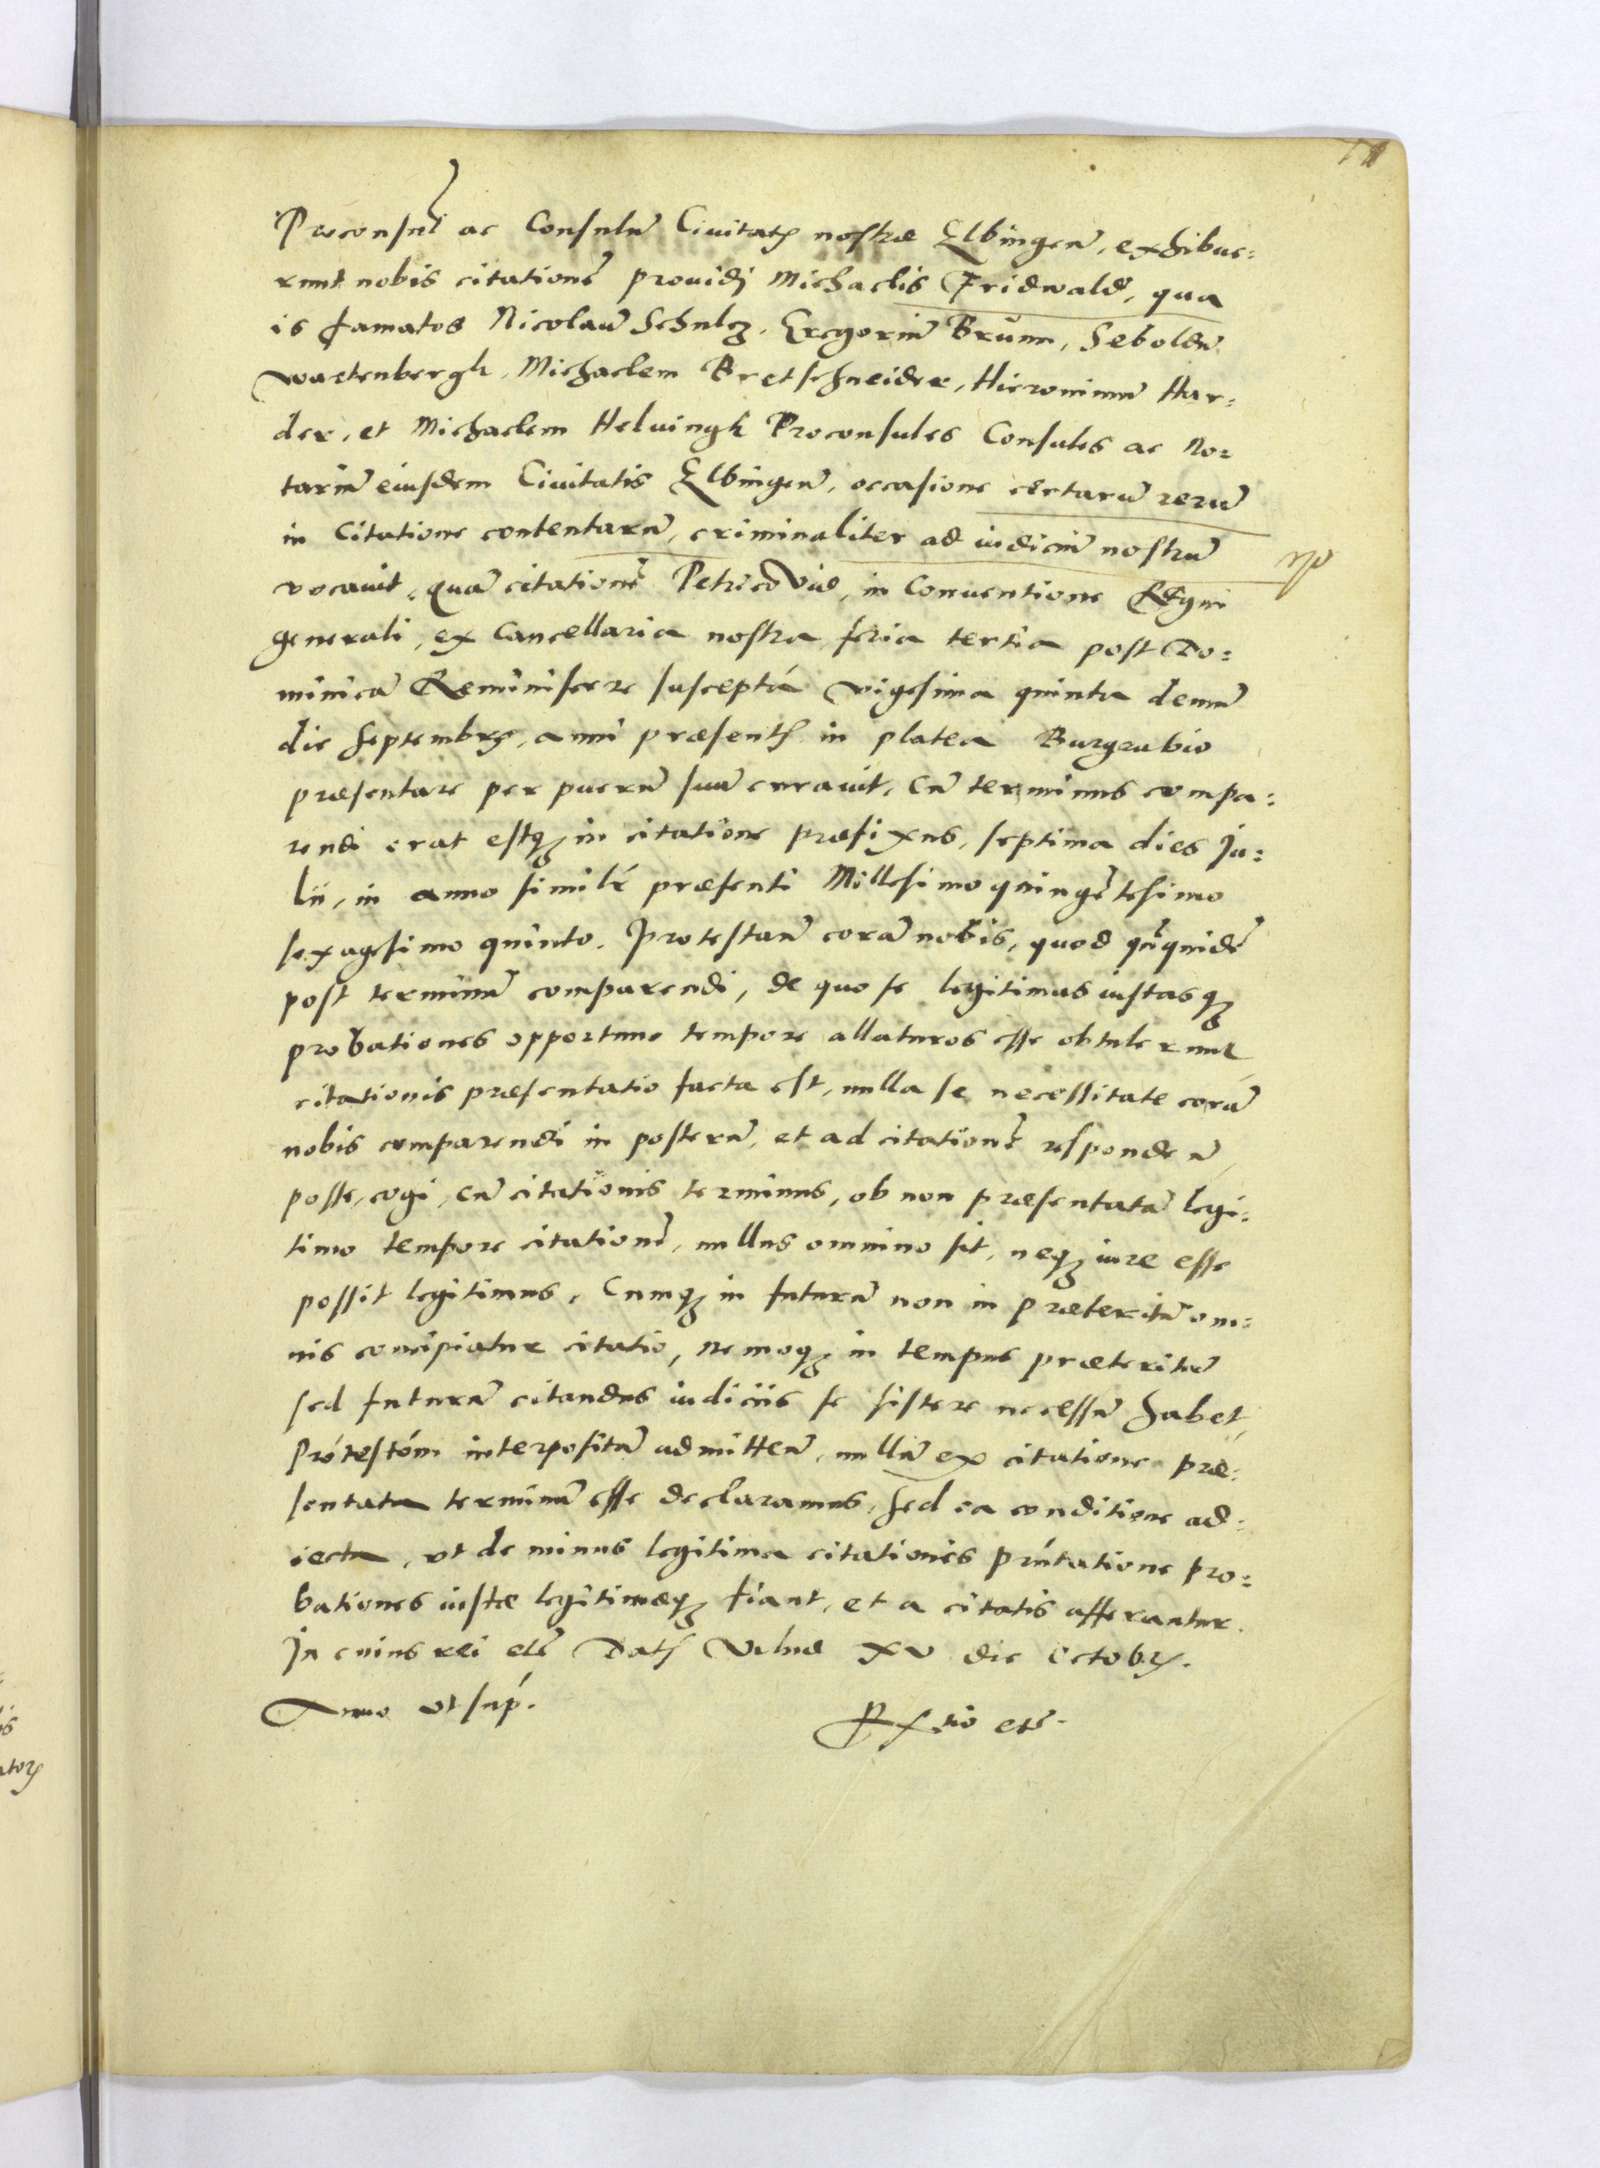 Proconsul ac Consulũ Ciuitatꝭ nostræ Elbingeñ, exhibue:
runt nobis citationẽ prouidj Michaelis Fridwald, qua
is famatos Nicolaũ Schulcz, Gregoriũ Brunn, Seboldũ
Wartenbergk, Michaelem Bretschneider, Hieronimũ Har:
der, et Michaelem Heluingk Proconsules Consules ac No:
tariũ eiusdem Ciuitatis Elbingeñ, occasione certarũ rerũ
in Citatione contentarũ, criminaliter ad iudiciũ nostrũ
np
vocauit, quã citationẽ Petricouiæ, in Conuentione Regni
generali, ex Cancellaria nostra feria tertia post Do:
minicã Reminiscere susceptã vigesima quinta demũ
die Septembrꝭ, anni præsentꝭ in platea Burgeubio
præsentare per puerũ suũ curauit, cũ terminus compa:
rendi erat estqꝫ in citatione præfixus, septima dies Ju:
lii, in anno simili præsenti Millesimo quingẽtesimo
sexagesimo quinto. Protestañ corã nobis, quod quidẽ
post terminũ comparendi, de quo se legitimas iustasqꝫ
probationes opportuno tempore allaturos esse obtulerunt
citationis præsentatio facta est, nulla se necessitate corã
nobis comparendi in posterũ, et ad citationẽ respondeñ,
posse, cogi, cũ citationis terminus, ob non præsentatã legi:
timo tempore citationẽ, nullus omnino sit, neqꝫ iure esse
possit legitimus, Cumqꝫ in futurũ non in præteritũ om:
nis concipiatur citatio, nemoqꝫ in tempus præteritũ
sed futurũ citandus iudiciis se sistere necessũ habet,
Protestõm interpositã admitteñ, nullũ ex citatione præ:
sentata terminũ esse declaramus, sed ea conditione ad:
iecta, vt de minus legitima citationis pñtatione pro:
bationes iustæ legitimæqꝫ fiant, et a citatis afferantur.
In cuius rei etc̃ Datꝭ Vilnæ XV die Octobrꝭ.
Anno vt sup̃.
Rxtio etc̃.